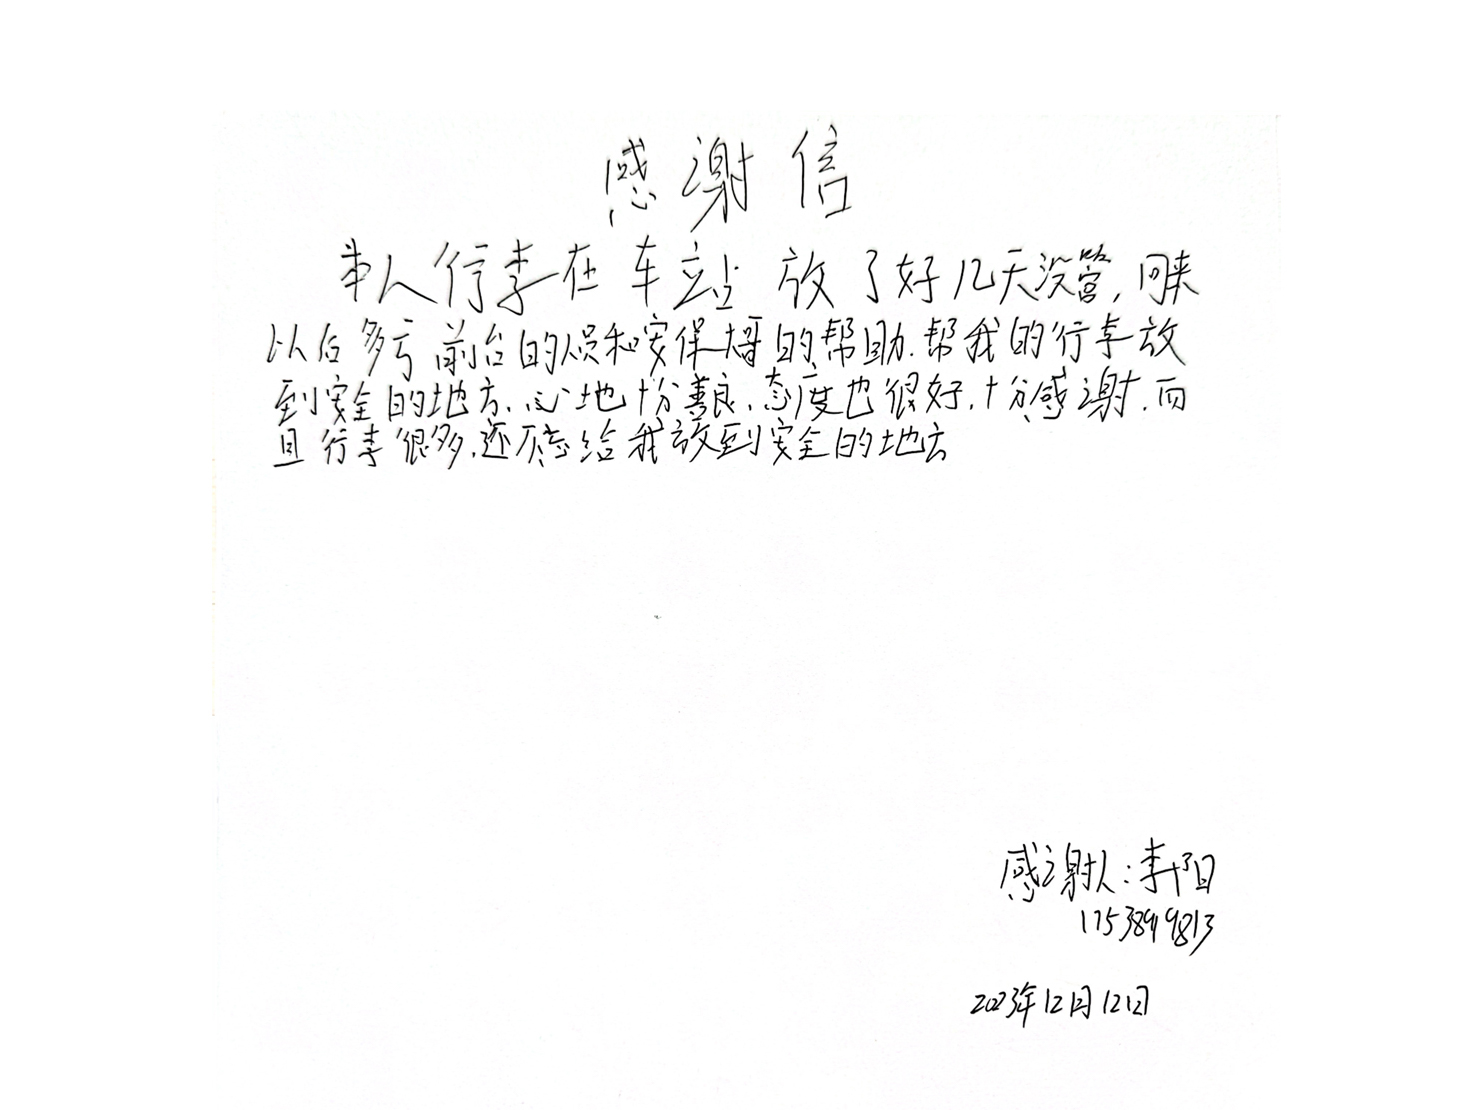 感谢信
本人行李在车站放了好几天没管,回来
以后多亏前台的人员和安保大哥的帮助.帮我的行李放
到安全的地方、心地十分善良、态度也很好、十分感谢、而
且行李很多、还愿意给我放到安全的地方
感谢人:李阳
2023年12月12日